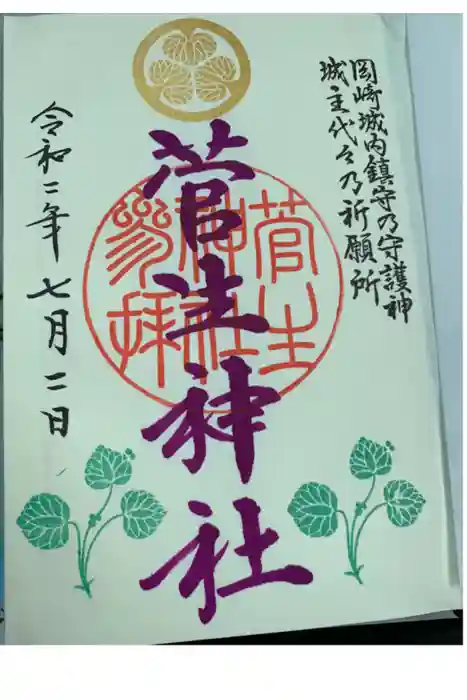 岡崎城内鎮守乃守護神
城主代々乃祈願所
菅生神社
菅生
神社
參拝
令和二年七月二日